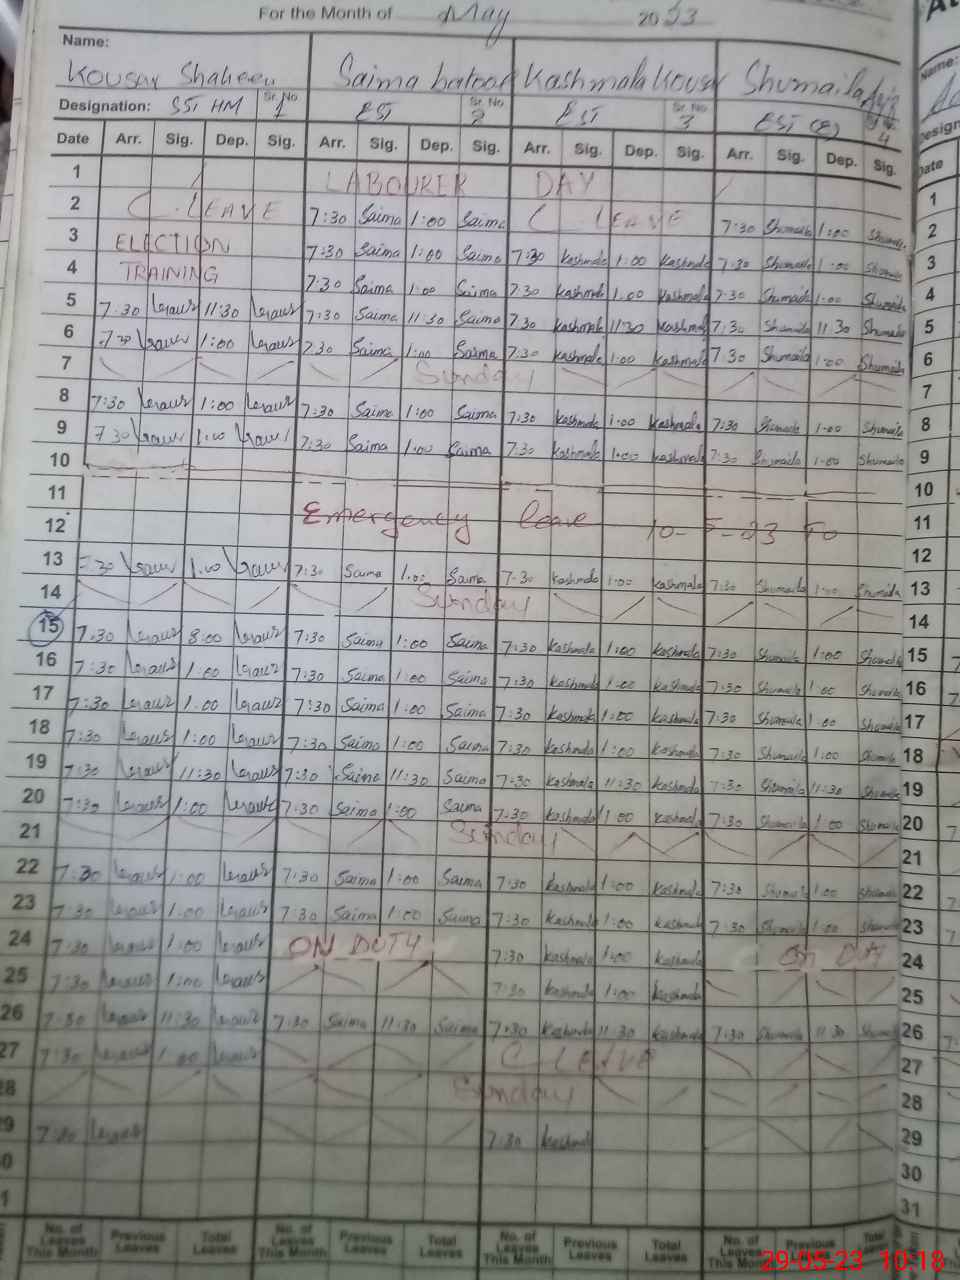 For the Month of May 2023
Name:
Kousar Shaheen Saima batool Kashmala Kousar Shumaila
Designation: SST HM Sr. No 1 EST Sr. No 2 EST Sr. No 3 EST (E) 4
Date Arr. Sig. Dep. Sig. Arr. Sig. Dep. Sig. Arr. Sig. Dep. Sig. Arr. Sig. Dep. Sig.
1 LABOURER DAY
2 C. LEAVE 7:30 Saima 1:00 Saima C LEAVE 7:30 Shumaila 1:00 Shumaila
3 ELECTION 7:30 Saima 1:00 Saima 7:30 Kashmala 1:00 Kashmala 7:30 Shumaila 1:00 Shumaila
4 TRAINING 7:30 Saima 1:00 Saima 7:30 Kashmala 1:00 Kashmala 7:30 Shumaila 1:00 Shumaila
5 7:30 11:30 7:30 Saima 11:30 Saima 7:30 Kashmala 11:30 Kashmala 7:30 Shumaila 11:30 Shumaila
6 7:30 1:00 7:30 Saima 1:00 Saima 7:30 Kashmala 1:00 Kashmala 7:30 Shumaila 1:00 Shumaila
7 Sunday
8 7:30 1:00 7:30 Saima 1:00 Saima 7:30 Kashmala 1:00 Kashmala 7:30 Shumaila 1:00 Shumaila
9 7:30 1:00 7:30 Saima 1:00 Saima 7:30 Kashmala 1:00 Kashmala 7:30 Shumaila 1:00 Shumaila
10
11 Emergency leave 10-5-23 to
12
13 7:30 1:00 7:30 Saima 1:00 Saima 7:30 Kashmala 1:00 Kashmala 7:30 Shumaila 1:00 Shumaila
14 Sunday
15 7:30 8:00 7:30 Saima 1:00 Saima 7:30 Kashmala 1:00 Kashmala 7:30 Shumaila 1:00 Shumaila
16 7:30 1:00 7:30 Saima 1:00 Saima 7:30 Kashmala 1:00 Kashmala 7:30 Shumaila 1:00 Shumaila
17 7:30 1:00 7:30 Saima 1:00 Saima 7:30 Kashmala 1:00 Kashmala 7:30 Shumaila 1:00 Shumaila
18 7:30 1:00 7:30 Saima 1:00 Saima 7:30 Kashmala 1:00 Kashmala 7:30 Shumaila 1:00 Shumaila
19 7:30 11:30 7:30 Saima 11:30 Saima 7:30 Kashmala 11:30 Kashmala 7:30 Shumaila 11:30 Shumaila
20 7:30 1:00 7:30 Saima 1:00 Saima 7:30 Kashmala 1:00 Kashmala 7:30 Shumaila 1:00 Shumaila
21 Sunday
22 7:30 1:00 7:30 Saima 1:00 Saima 7:30 Kashmala 1:00 Kashmala 7:30 Shumaila 1:00 Shumaila
23 7:30 1:00 7:30 Saima 1:00 Saima 7:30 Kashmala 1:00 Kashmala 7:30 Shumaila 1:00 Shumaila
24 7:30 1:00 ON DUTY 7:30 Kashmala 1:00 Kashmala On Duty
25 7:30 1:00 7:30 Kashmala 1:00 Kashmala
26 7:30 11:30 7:30 Saima 11:30 Saima 7:30 Kashmala 11:30 Kashmala 7:30 Shumaila 11:30 Shumaila
27 7:30 1:00 C LEAVE
28 Sunday
29 7:30 7:30 Kashmala
No. of Leaves This Month Previous Leaves Total Leaves No. of Leaves This Month Previous Leaves Total Leaves No. of Leaves This Month Previous Leaves Total Leaves No. of Leaves This Month Previous Leaves Total
Name:
1
2
3
4
5
6
7
8
9
10
11
12
13
14
15
16
17
18
19
20
21
22
23
24
25
26
27
28
29
30
31
29-05-23 10:18